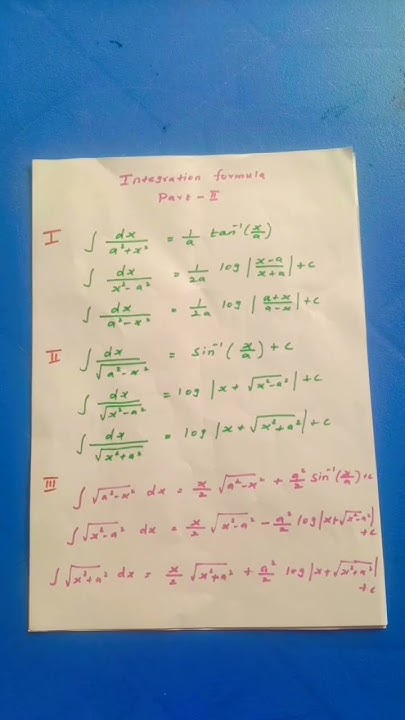 Integration formula
Part - II
I ∫ dx/(a²+x²) = 1/a tan⁻¹(x/a)
∫ dx/(x²-a²) = 1/2a log |(x-a)/(x+a)| + c
∫ dx/(a²-x²) = 1/2a log |(a+x)/(a-x)| + c
II ∫ dx/√(a²-x²) = sin⁻¹(x/a) + c
∫ dx/√(x²-a²) = log |x + √(x²-a²)| + c
∫ dx/√(x²+a²) = log |x + √(x²+a²)| + c
III ∫ √(a²-x²) dx = x/2 √(a²-x²) + a²/2 sin⁻¹(x/a) + c
∫ √(x²-a²) dx = x/2 √(x²-a²) - a²/2 log |x + √(x²-a²)|
+ c
∫ √(x²+a²) dx = x/2 √(x²+a²) + a²/2 log |x + √(x²+a²)|
+ c